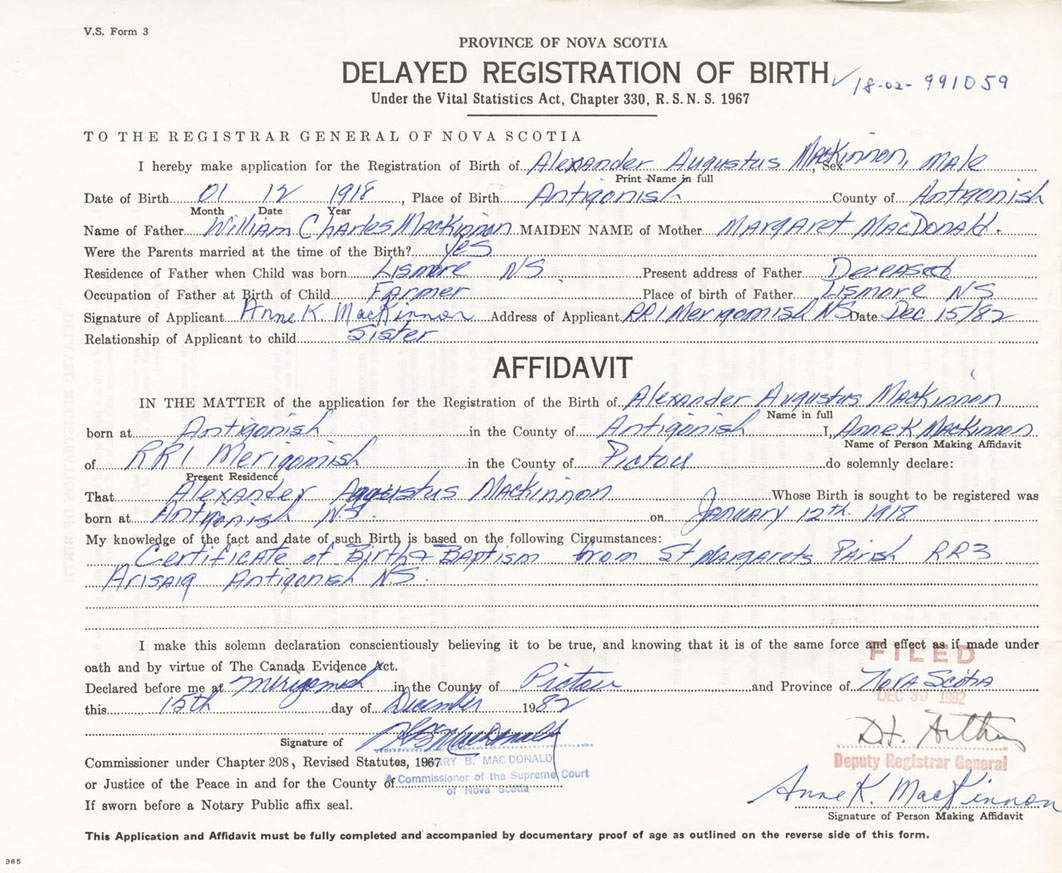 V.S. Form 3
PROVINCE OF NOVA SCOTIA
DELAYED REGISTRATION OF BIRTH ✓ 18-02-991059
Under the Vital Statistics Act, Chapter 330, R.S.N.S. 1967
TO THE REGISTRAR GENERAL OF NOVA SCOTIA
I hereby make application for the Registration of Birth of Alexander Augustus MacKinnon, Sex male
Print Name in full
Date of Birth 01 12 1918, Place of Birth Antigonish County of Antigonish
Month Date Year
Name of Father William Charles MacKinnon MAIDEN NAME of Mother Margaret MacDonald.
Were the Parents married at the time of the Birth? yes
Residence of Father when Child was born Lismore NS Present address of Father Deceased
Occupation of Father at Birth of Child Farmer Place of birth of Father Lismore NS
Signature of Applicant Anne K. MacKinnon Address of Applicant RR1 Merigomish NS Date Dec 15/82
Relationship of Applicant to child Sister
AFFIDAVIT
IN THE MATTER of the application for the Registration of the Birth of Alexander Augustus MacKinnon
Name in full
born at Antigonish in the County of Antigonish I, Anne K MacKinnon
Name of Person Making Affidavit
of RR1 Merigomish in the County of Pictou do solemnly declare:
Present Residence
That Alexander Augustus MacKinnon Whose Birth is sought to be registered was
born at Antigonish NS. on January 12th. 1918
My knowledge of the fact and date of such Birth is based on the following Circumstances:
Certificate of Birth & Baptism from St Margarets Parish RR3
Arisaig Antigonish NS.
I make this solemn declaration conscientiously believing it to be true, and knowing that it is of the same force and effect as if made under
oath and by virtue of The Canada Evidence Act.
FILED
Declared before me at Merigomish in the County of Pictou and Province of Nova Scotia
DEC 30 1982
this 15th day of December 1982
Signature of
Deputy Registrar General
Commissioner under Chapter 208, Revised Statutes, 1967
RY B. MAC DONALD
or Justice of the Peace in and for the County of
A Commissioner of the Supreme Court
of Nova Scotia
Anne K. MacKinnon
If sworn before a Notary Public affix seal.
Signature of Person Making Affidavit
This Application and Affidavit must be fully completed and accompanied by documentary proof of age as outlined on the reverse side of this form.
385